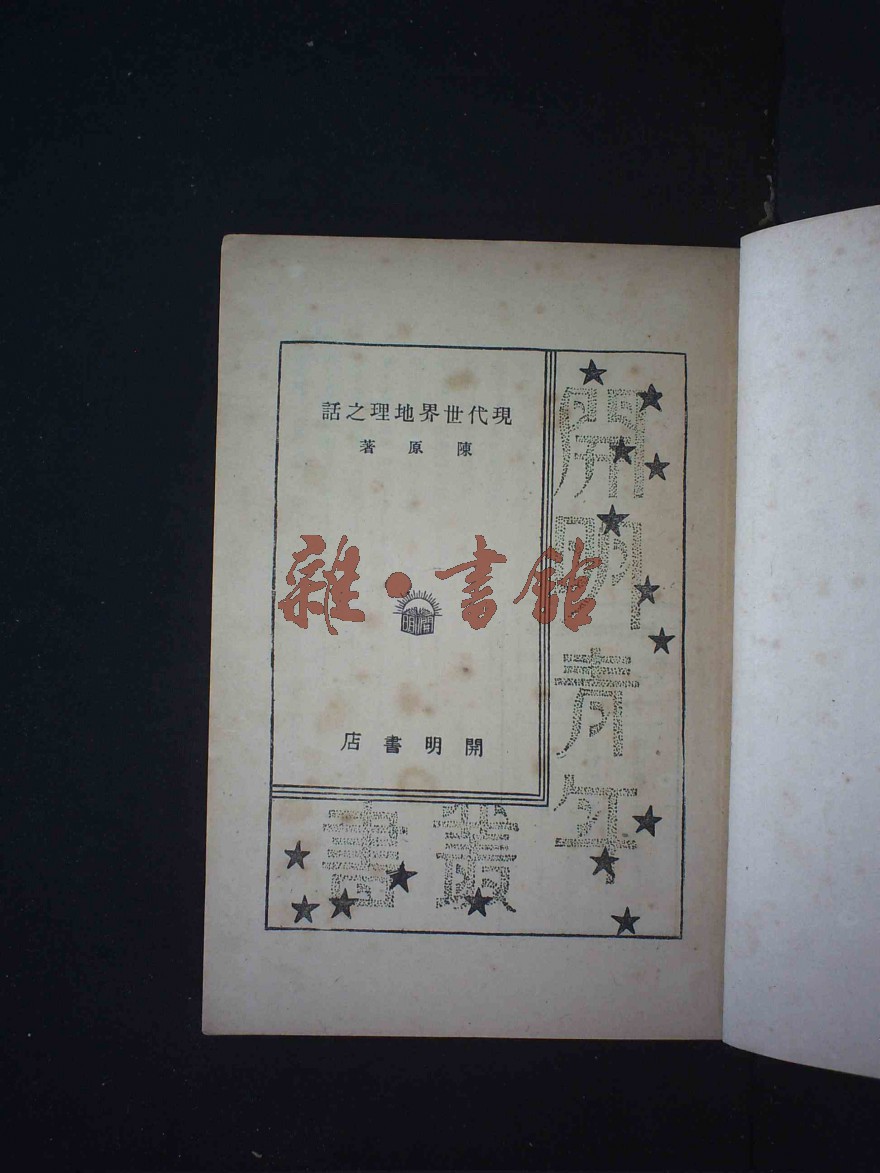 現代世界地理之話
陳原著
雜·書館
開明
開明書店
開明青年
叢書